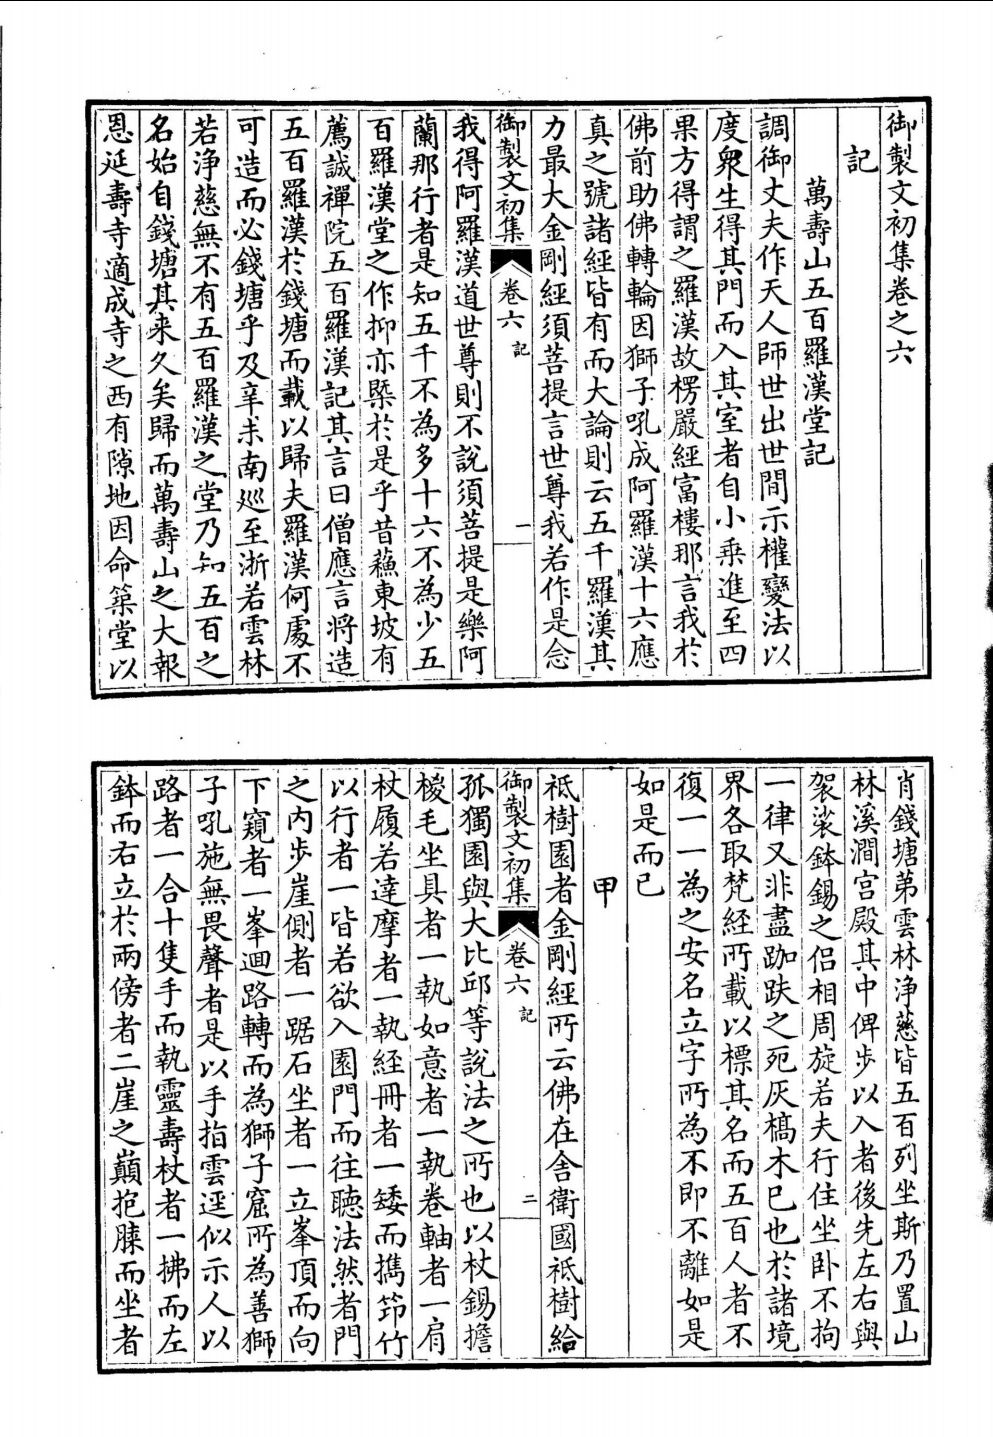 御製文初集卷之六
記
萬壽山五百羅漢堂記
調御丈夫作天人師世出世間示權變法以
度衆生得其門而入其室者自小乘進至四
果方得謂之羅漢故楞嚴經富樓那言我於
佛前助佛轉輪因獅子吼成阿羅漢十六應
真之號諸經皆有而大論則云五千羅漢其
力最大金剛經須菩提言世尊我若作是念
御製文初集
卷六
記
一
我得阿羅漢道世尊則不說須菩提是樂阿
蘭那行者是知五千不為多十六不為少五
百羅漢堂之作抑亦槩於是乎昔蘓東坡有
薦誠禪院五百羅漢記其言曰僧應言將造
五百羅漢於錢塘而載以歸夫羅漢何處不
可造而必錢塘乎及辛未南廵至浙若雲林
若淨慈無不有五百羅漢之堂乃知五百之
名始自錢塘其来久矣歸而萬壽山之大報
恩延壽寺適成寺之西有隙地因命築堂以
肖錢塘第雲林淨慈皆五百列坐斯乃置山
林溪澗宫殿其中俾步以入者後先左右與
袈裟鉢錫之侶相周旋若夫行住坐卧不拘
一律又非盡跏趺之死灰槁木已也於諸境
界各取梵經所載以標其名而五百人者不
復一一為之安名立字所為不即不離如是
如是而已
甲
祇樹園者金剛經所云佛在舍衛國祇樹給
御製文初集
卷六
記
二
孤獨園與大比邱等說法之所也以杖錫擔
椶毛坐具者一執如意者一執卷軸者一肩
杖履若達摩者一執經冊者一矮而攜笻竹
以行者一皆若欲入園門而往聽法然者門
之内步崖側者一踞石坐者一立峯頂而向
下窺者一峯迴路轉而為獅子窟所為善獅
子吼施無畏聲者是以手指雲逕似示人以
路者一合十隻手而執靈壽杖者一拂而左
鉢而右立於兩傍者二崖之巔抱膝而坐者